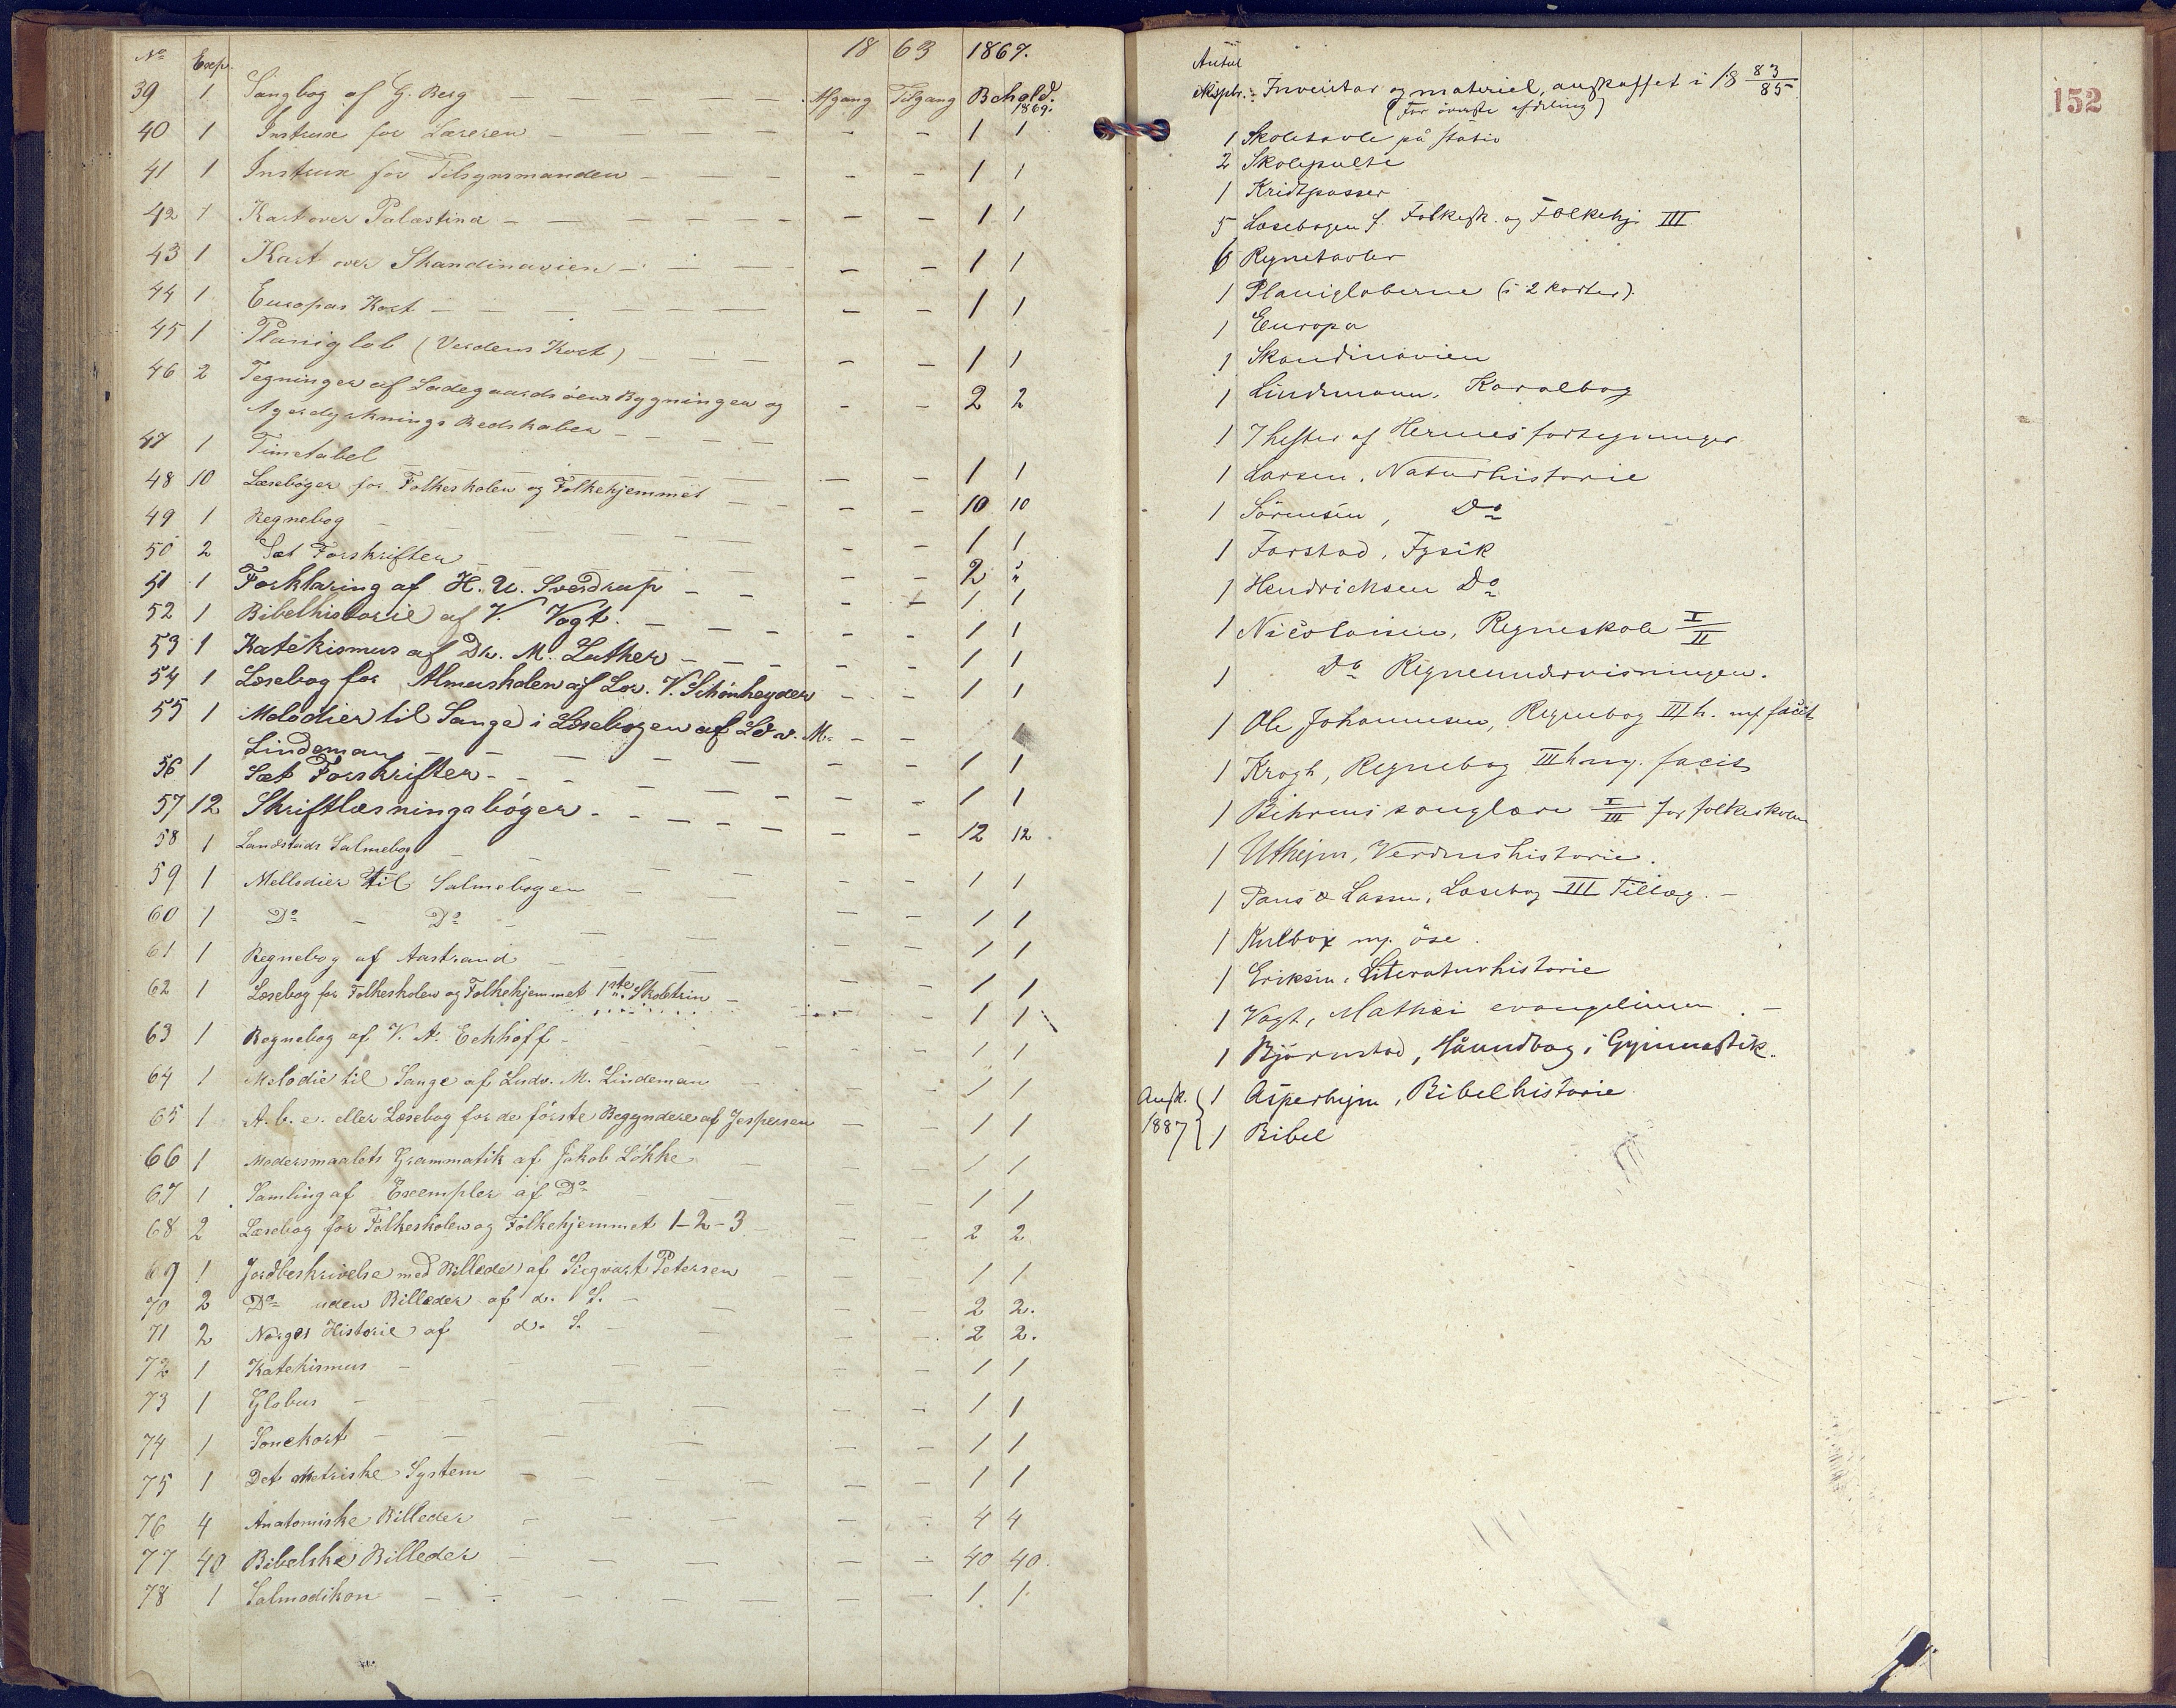 No Exp. 18 63 1867.
39 1 Sangbog af G. Berg — — — Afgang Tilgang Behold. 1869.
40 1 Instrux for Læreren — — — — — — 1 1
41 1 Instrux for Tilsynsmanden — — — — — 1 1
42 1 Kart over Palæstina — — — — — — — 1 1
43 1 Kart over Skandinavien — — — — — 1 1
44 1 Europas Kort — — — — — — — — 1 1
45 1 Planiglob (Verdens Kort) — — — — — 1 1
46 2 Tegninger af Ladegaardsöens Bygninger og — — 2 2
Agerdyrknings Redskaber — — — —
47 1 Timetabel — — — — — — 1 1
48 10 Læsebøger for Folkeskolen og Folkehjemmet — — — — 10 10
49 1 Regnebog — — — — — — 1 1
50 2 Sæt Forskrifter — — — — 2 "
51 1 Forklaring af H. U. Sverdrup — — — — 1 1
52 1 Bibelhistorie af V. Vogt. — — — — — — 1 1
53 1 Katekismus af Dr. M. Luther — — — — — — 1 1
54 1 Læsebog for Almuskolen af Lor. V. Schönheyder — — 1 1
55 1 Melodier til Sange i Læsebogen af Ldv. M. — —
Lindeman — — — — — — — 1 1
56 1 Sæt Forskrifter - - - — — — — — 1 1
57 12 Skriftlæsningsbøger - - - — — — — — 12 12
58 1 Landstads Salmebog — — — — — 1 1
59 1 Mellodier til Salmebogen — — — — 1 1
60 1 Do — Do — — — — 1 1
61 1 Regnebog af Aastrand — — — — 1 1
62 1 Læsebog for Folkeskolen og Folkehjemmet 1ste Skoletrin — — — 1 1
63 1 Regnebog af V. A. Eckhoff - — — — 1 1
64 1 Melodie til Sange af Ludv. M. Lindeman — — — 1 1
65 1 A. b. c. eller Læsebog for de første Begyndere af Jespersen — — 1 1
66 1 Modersmaalets Grammatik af Jakob Løkke — — — 1 1
67 1 Samling af Exempler af Do — — — — 1 1
68 2 Læsebog for Folkeskolen og Folkehjemmet 1-2-3 — — — 2 2
69 1 Jordbeskrivelse med Billeder af Siegvart Petersen — — — 1 1
70 2 Do uden Billeder af d. S. — — — — 2 2.
71 2 Norges Historie af d. S. — — — — 2 2.
72 1 Katekismus — — — — — — 1 1
73 1 Globus — — — — — — — 1 1
74 1 Sonekort — — — — — — 1 1
75 1 Det metriske System — — — — — — 1 1
76 4 Anatomiske Billeder — — — — — — 4 4
77 40 Bibelske Billeder — — — — — — 40 40.
78 1 Salmodikon — — — — — — — 1 1
152
Antal
ekspl. Inventar og materiel, anskaffet i 18 83/85
(For øverste afdeling)
1 Skoletavle på stativ
2 Skolepulte
1 Kridtpasser
5 Læsebogen f. Folkesk. og Folkehj. III
6 Regnetavler
1 Planigloberne (i 2 karter).
1 Europa
1 Skandinavien
1 Lindemann, Koralbog
1 7 hefter af Hermes fortegninger
1 Larsen, Naturhistorie
1 Sörensen, Do
1 Farstad, Fysik
1 Hendrichsen Do
1 Nicolaisen, Regneskole I/II
1 Do Regneundervisningen.
1 Ole Johannesen, Regnebog III h. m/ facit
1 Krogh, Regnebog III h m/. facit
1 Behrens sanglære I/III for folkeskolen
1 Uthejm, Verdenshistorie.
1 Paus & Lassen, Læsebog III Tillæg. —
1 Kulbox m/. öse.
1 Eriksen, Literaturhistorie
1 Vogt, Mathæi evangelium. —
1 Bjørnstad, Haandbog i Gymnastik.
Ansk. 1 Asperheim, Bibelhistorie
1887 1 Bibel